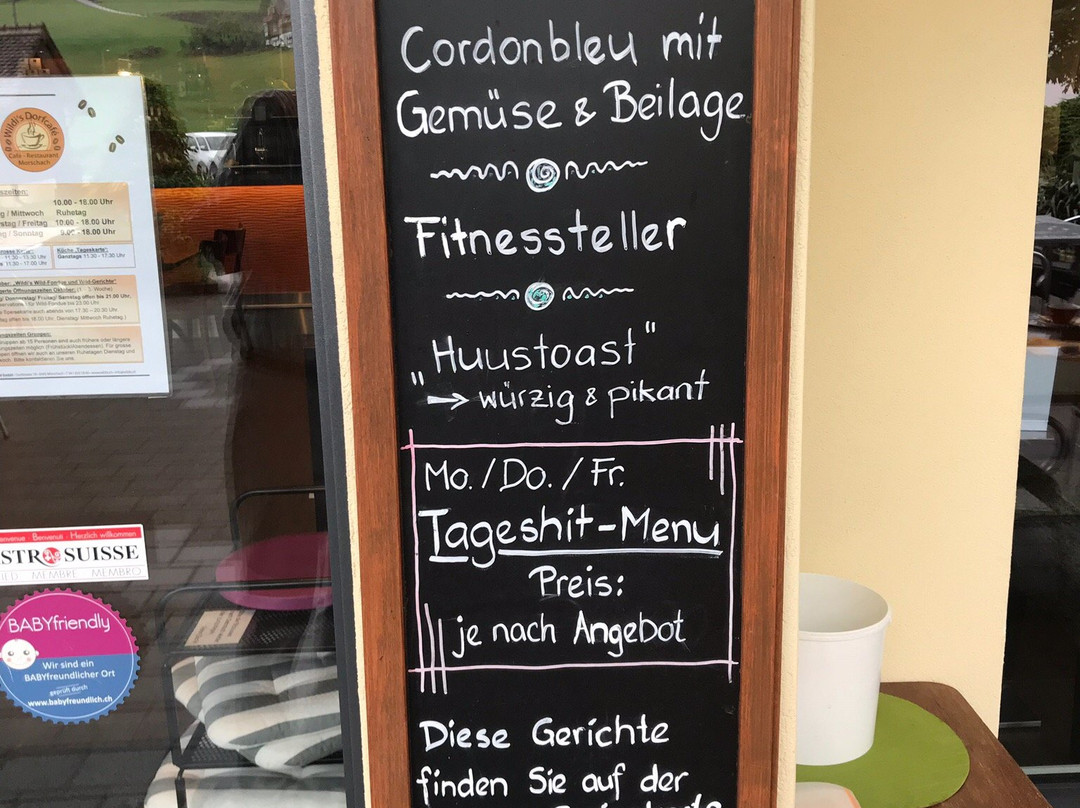 Cordonbleu mit
Gemüse & Beilage
Fitnessteller
„Huustoast"
→ würzig & pikant
Mo. / Do. / Fr.
Tageshit-Menu
Preis:
je nach Angebot
Diese Gerichte
finden Sie auf der
Wildi's Dorfcafé
Café - Restaurant
Morschach
10.00 - 18.00 Uhr
/ Mittwoch Ruhetag
/ Freitag 10.00 - 18.00 Uhr
/ Sonntag 9.00 - 18.00 Uhr
Küche „Tageskarte":
Ganztags 11.30 - 17.30 Uhr
Bienvenue Benvenuti Herzlich willkommen
STR SUISSE
MEMBRE MEMBRO
BABYfriendly
Wir sind ein
BABYfreundlicher Ort
geprüft durch
www.babyfreundlich.ch